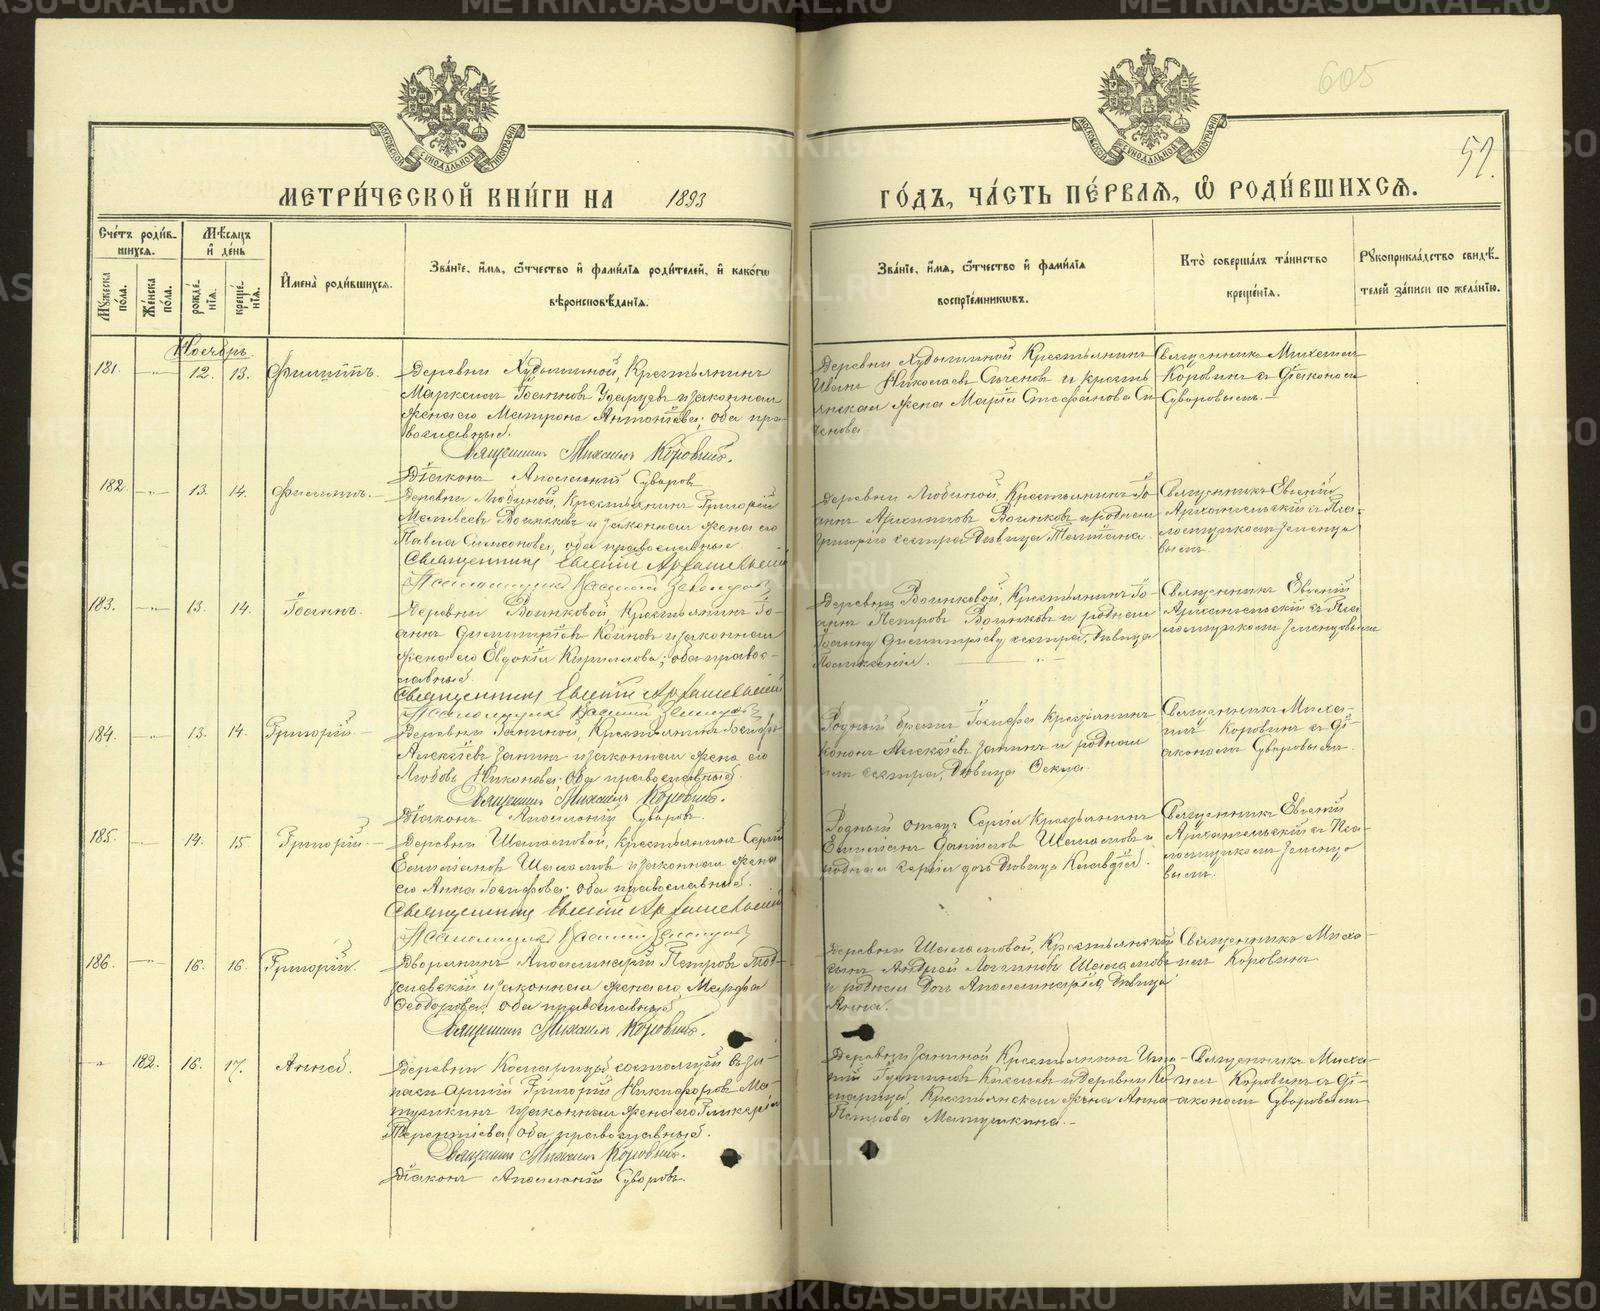 605
52.
МЕТРИ́ЧЕСКОЙ КНИ́ГИ НА 1893 ГО́ДЪ, ЧА́СТЬ ПЕ́РВАЯ, Ѽ РОДИ́ВШИХСѦ.
МОСКОВСКОЙ СѴНОДАЛЬНОЙ ТИПОГРАФІИ
МОСКОВСКОЙ СѴНОДАЛЬНОЙ ТИПОГРАФІИ
Сче́тъ роди́вшихсѧ.
Мѣ́сѧцъ и҆ де́нь
Мꙋ́жеска по́ла.
Же́нска по́ла.
рожде́нїѧ.
креще́нїѧ.
И҆мена̀ роди́вшихсѧ.
Зва́нїе, и҆́мѧ, ѻ҆́тчество и҆ фами́лїѧ роди́телей, и҆ како́гѡ
вѣроисповѣ́данїѧ.
Зва́нїе, и҆́мѧ, ѻ҆́тчество и҆ фами́лїѧ
воспрїе́мникѡвъ.
Кто̀ соверша́лъ та́инство
креще́нїѧ.
Рꙋкоприкла́дство свидѣ́-
телей за́писи по жела́нїю.
Ноябрь.
181. 12. 13. Филиппъ.
Деревни Худышиной, Крестьянинъ
Маркелъ Іоанновъ и законная
жена его Матрона Антоніева; оба пра-
вославные.
Священникъ Михаилъ Коровинъ.
Діаконъ Аполлоній Суворовъ
Деревни Худышиной Крестьянинъ
Иванъ Николаевъ и кресть-
янская жена Марія Стефанова Си-
Священникъ Михаилъ
Коровинъ съ Діакономъ
Суворовымъ.
182. 13. 14. Филиппъ.
Деревни Крестьянинъ Григорій
Матвѣевъ Воинковъ и законная жена его
Павла Симеонова, оба православные
Священникъ Евгеній Архангельскій
Псаломщикъ Василій
Деревни Крестьянинъ Іо-
аннъ Архипповъ Воинковъ и родная
Григорію сестра дѣвица Татіана.
Священникъ Евгеній
Архангельскій съ Пса-
ломщикомъ
183. 13. 14. Іоаннъ.
Деревни Воинковой, Крестьянинъ Іо-
аннъ Димитріевъ и законная
жена его Евдокія Кириллова; оба правос-
лавные.
Священникъ Евгеній Архангельскій
Псаломщикъ Василій
Деревни Воинковой, Крестьянинъ Іо-
аннъ Петровъ Воинковъ и родная
Іоанну Димитріеву сестра, дѣвица
Священникъ Евгеній
Архангельскій съ Пса-
ломщикомъ
184. 13. 14. Григорій.
Деревни Заниной, Крестьянинъ Іосифъ
Алексѣевъ Занинъ и законная жена его
Любовь Никонова; оба православные.
Священникъ Михаилъ Коровинъ.
Діаконъ Аполлоній Суворовъ.
Родный братъ Іосифа Крестьянинъ
Кононъ Алексѣевъ Занинъ и родная
ихъ сестра, дѣвица Ѳекла.
Священникъ Миха-
илъ Коровинъ съ Ді-
акономъ Суворовымъ.
185. 14. 15 Григорій.
Деревни Шаламовой, Крестьянинъ Сергій
Емиліановъ Шаламовъ и законная жена
его Анна Іосифова; оба православные.
Священникъ Евгеній Архангельскій
Псаломщикъ Василій
Родный отецъ Сергія Крестьянинъ
Емиліанъ Даніиловъ Шаламовъ и
родная Сергія дочь дѣвица Клавдія.
Священникъ Евгеній
Архангельскій съ Пса-
ломщикомъ
186. 16. 16. Григорій.
Дворянинъ Аполлинарій Петровъ
и законная жена его, Марѳа
Ѳеодорова; оба православные
Священникъ Михаилъ Коровинъ.
Деревни Шаламовой, Крестьянскій
сынъ Андрей Логгиновъ Шаламовъ
и родная дочь Аполлинарія, дѣвица
Анна.
Священникъ Миха-
илъ Коровинъ
182. 16. 17. Анна.
Деревни состоящій въ за-
пасѣ арміи Григорій Никифоровъ Ма-
тушкинъ и законная жена его Гликерія
Терентіева, оба православные.
Священникъ Михаилъ Коровинъ.
Діаконъ Аполлоній Суворовъ.
Деревни Заниной Крестьянинъ
и деревни
Крестьянская жена Анна
Петрова Матушкина.
Священникъ Миха-
илъ Коровинъ съ Ді-
акономъ Суворовымъ
METRIKI.GASO-URAL.RU